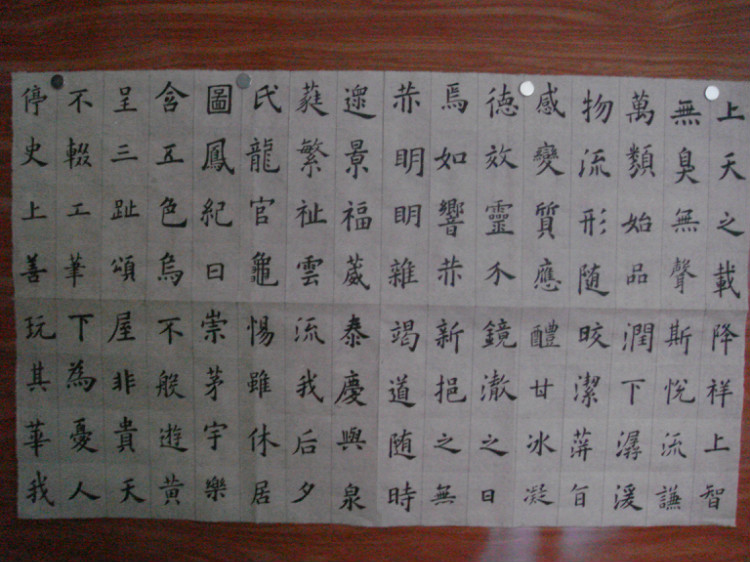 上天之載
無臭無聲
萬類始品
物流形随
感變質應
德效靈介
焉如響赫
赫明明雜
遝景福葳
蕤繁祉雲
氏龍官龜
圖鳳紀日
含五色烏
呈三趾頌
不輟工筆
停史上善
降祥上智
斯悅流謙
潤下潺湲
皎潔萍旨
醴甘冰凝
鏡澈之日
新挹之無
竭道随時
泰慶與泉
流我后夕
惕雖休居
崇茅宇樂
不般遊黃
屋非貴天
下為憂人
玩其華我